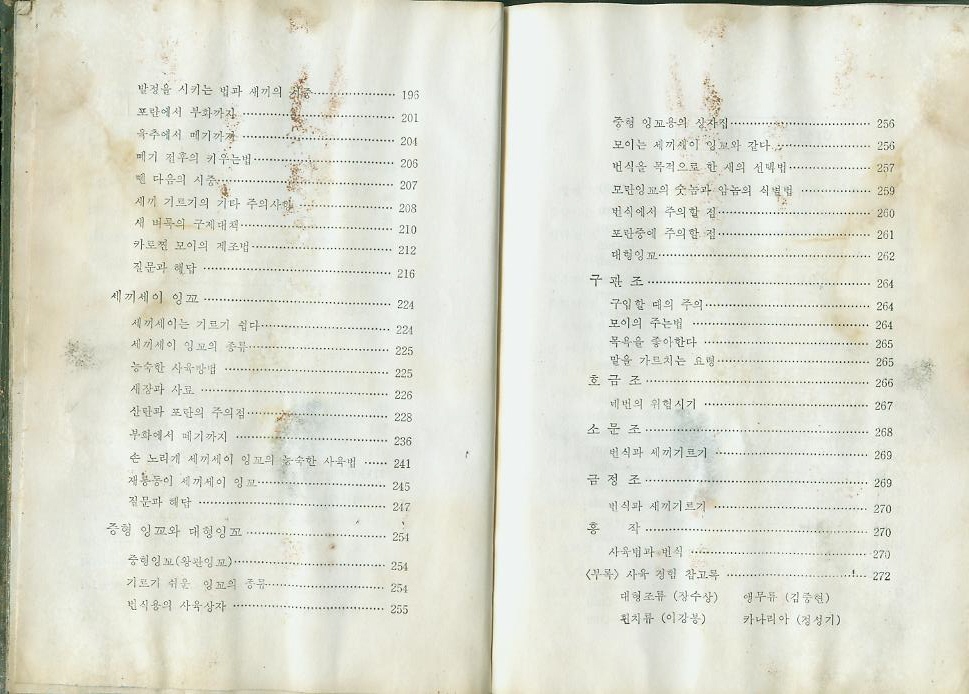 발정을 시키는 법과 새끼의 시중 196
포란에서 부화까지 201
육추에서 떼기까지 204
떼기 전후의 키우는법 206
뗀 다음의 시중 207
새끼 기르기의 기타 주의사항 208
새 벼룩의 구제대책 210
카로찐 모이의 제조법 212
질문과 해답 216
세끼세이 잉꼬 224
세끼세이는 기르기 쉽다 224
세끼세이 잉꼬의 종류 225
능숙한 사육방법 225
새장과 사료 226
산란과 포란의 주의점 228
부화에서 떼기까지 236
손 노리개 세끼세이 잉꼬의 능숙한 사육법 241
재롱둥이 세끼세이 잉꼬 245
질문과 해답 247
중형 잉꼬와 대형잉꼬 254
중형잉꼬(왕관잉꼬) 254
기르기 쉬운 잉꼬의 종류 254
번식용의 사육상자 255
중형 잉꼬용의 상자집 256
모이는 세끼세이 잉꼬와 같다 256
번식을 목적으로 한 새의 선택법 257
모란잉꼬의 숫놈과 암놈의 식별법 259
번식에서 주의할 점 260
포란중에 주의할 점 261
대형잉꼬 262
구 관 조 264
구입할 때의 주의 264
모이의 주는법 264
목욕을 좋아한다 265
말을 가르치는 요령 265
호 금 조 266
네번의 위험시기 267
소 문 조 268
번식과 새끼기르기 269
금 정 조 269
번식과 새끼기르기 270
홍 작 270
사육법과 번식 270
〈부록〉 사육 경험 참고록 272
대형조류 (장수상) 앵무류 (김중현)
휜치류 (이강봉) 카나리아 (정성기)